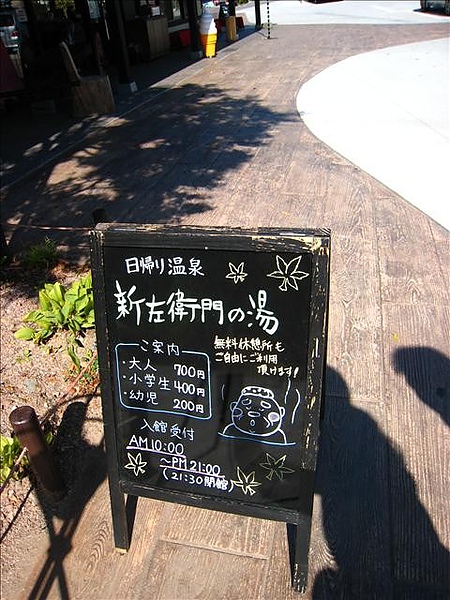 日帰り温泉
新左衛門の湯
無料休憩所も
ご自由にご利用
頂けます!
ご案内
・大人 700円
・小学生 400円
・幼児 200円
入館受付
AM10:00
~PM21:00
(21:30閉館)